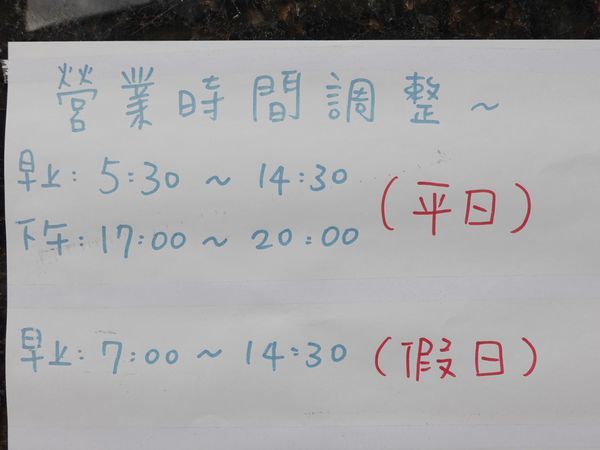 營業時間調整~
早上: 5:30 ~ 14:30
下午: 17:00 ~ 20:00
(平日)
早上: 7:00 ~ 14:30 (假日)